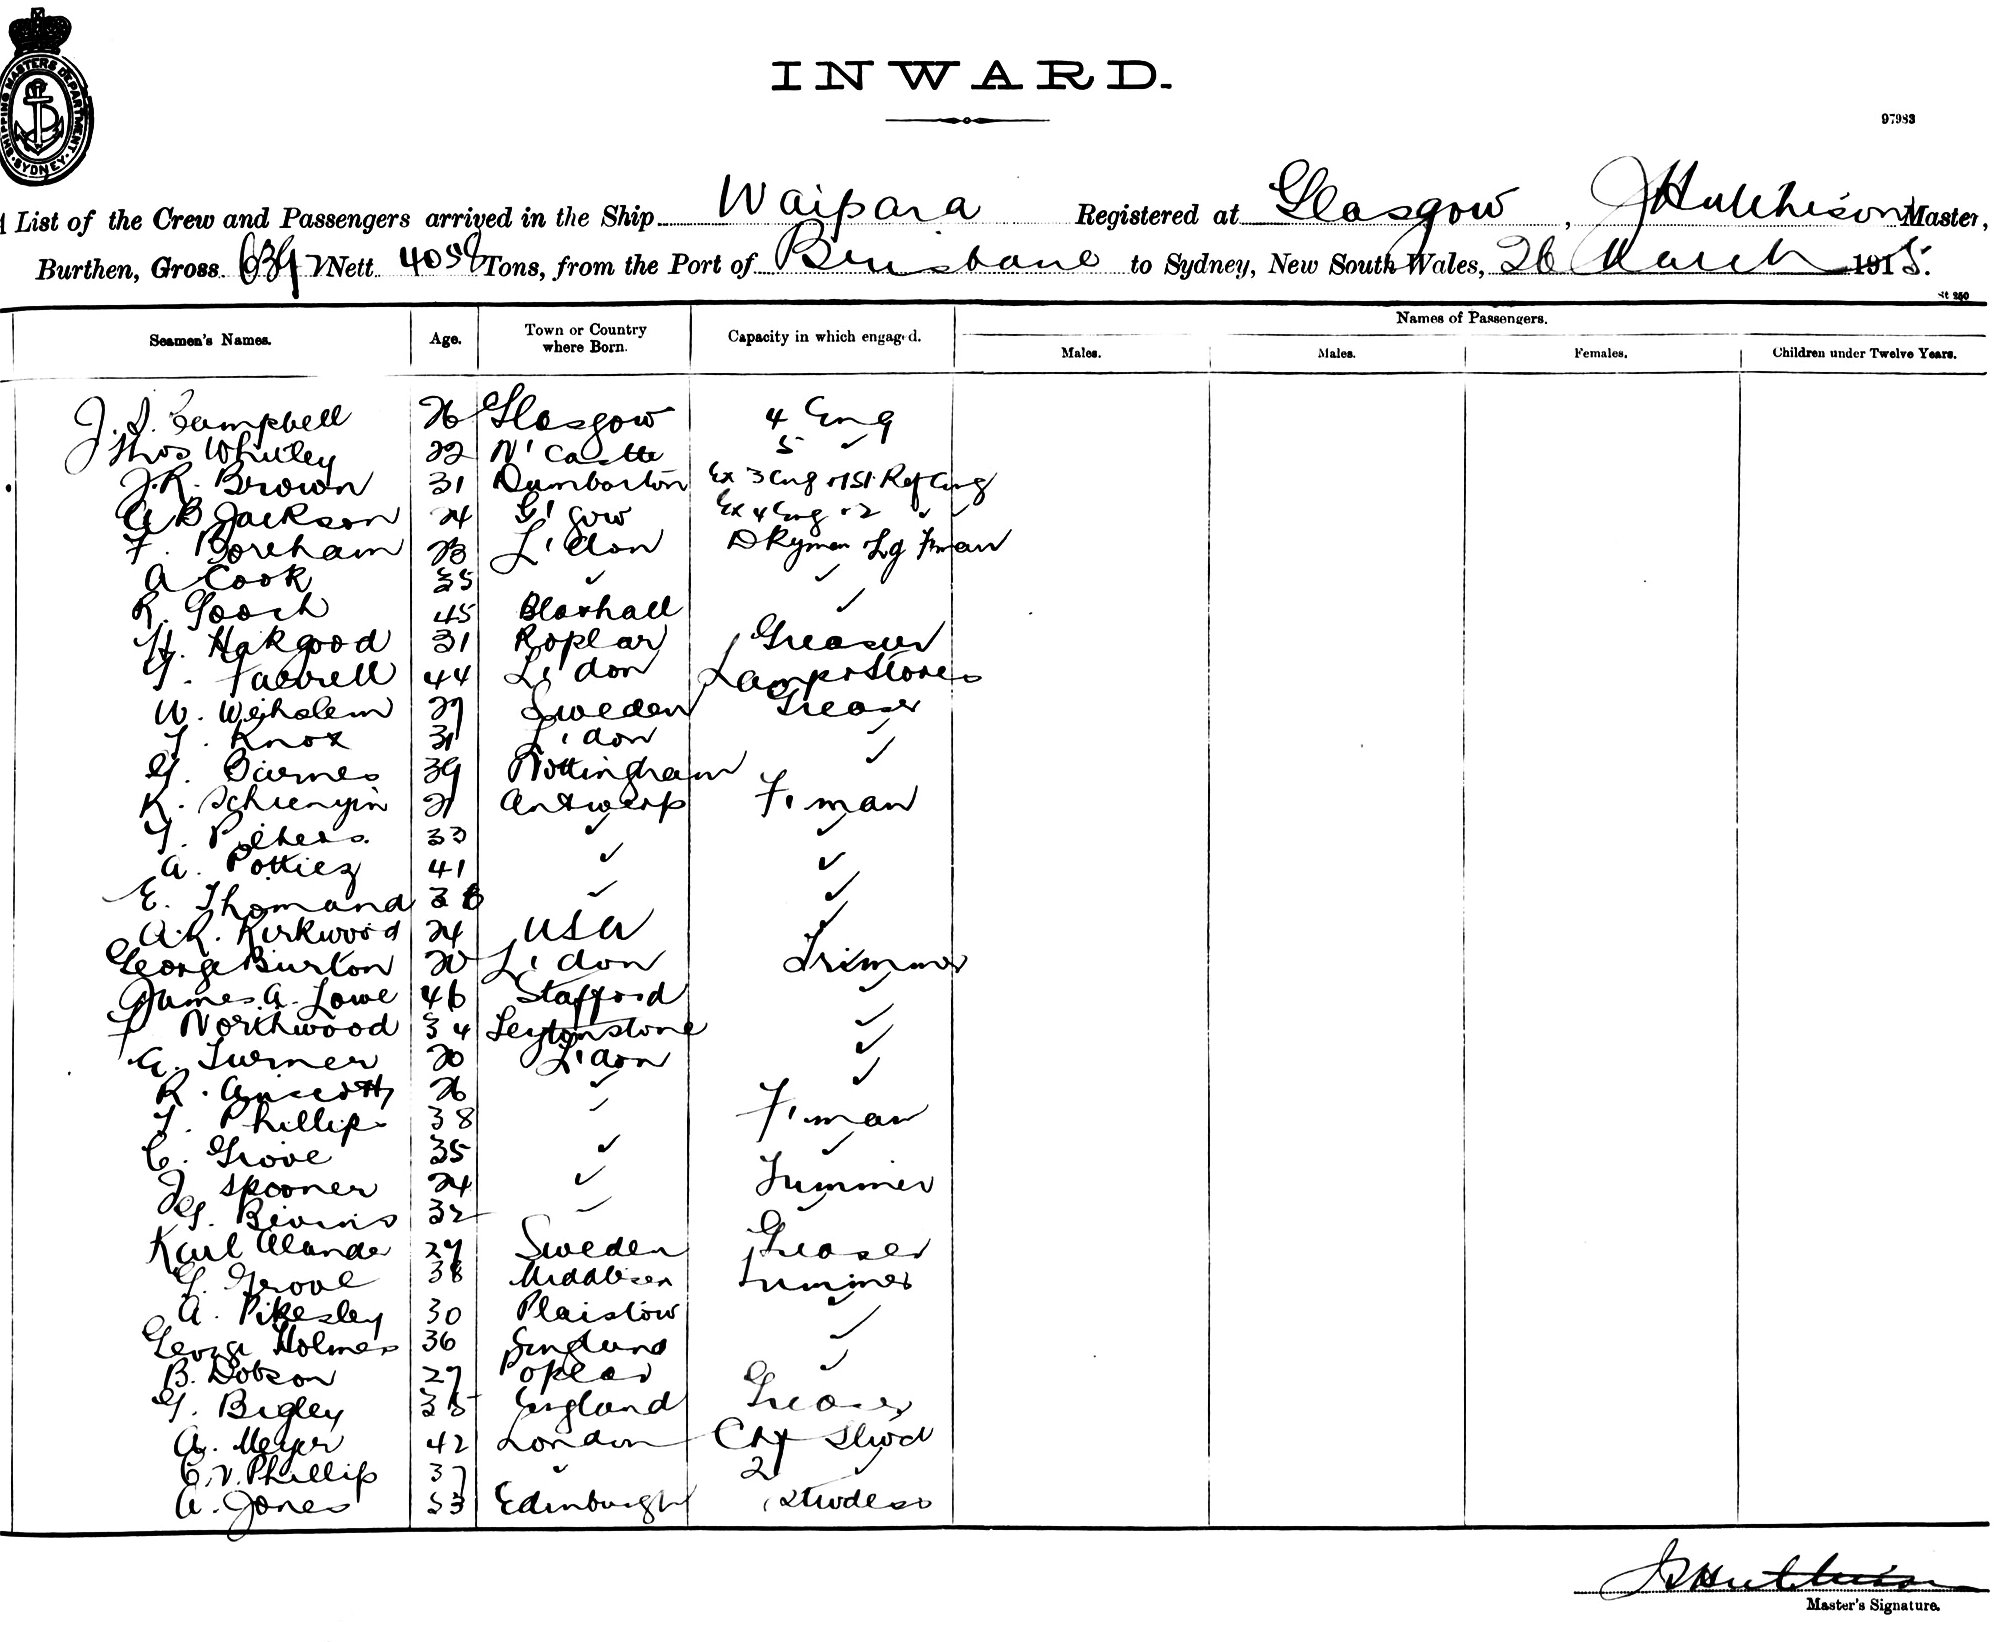 SHIPPING MASTERS DEPARTMENT · SYDNEY ·
INWARD.
97983
A List of the Crew and Passengers arrived in the Ship Waipara Registered at Glasgow, J Hutchison Master,
Burthen, Gross Nett 4058 Tons, from the Port of Brisbane to Sydney, New South Wales, 26 March 1915.
St 250
Names of Passengers.
Seamen's Names. Age. Town or Country where Born. Capacity in which engaged. Males. Males. Females. Children under Twelve Years.
J. S. Campbell 26 Glasgow 4 Eng
Thos Whitley 22 N'Castle 5 ✓
J. R. Brown 31 Dumbarton Ex 3 Eng + 1st Ref Eng
A B Jackson 24 G'gow Ex 4 Eng + 2 ✓ ✓
F. Boreham 23 L'don Dkyman Ldg F'man
A Cook 35 ✓ ✓
R. Gooch 45 Blaxhall ✓
H. Hakgood 31 Poplar Greaser
44 L'don Lamps & Stores
W. 29 Sweden Greaser
J. Knox 31 L'don ✓
G. Barnes 39 Nottingham ✓
K. 21 Antwerp F'man
33 ✓ ✓
A. Pottiez 41 ✓ ✓
E. Thomand 38 ✓ ✓
A. R. Kirkwood 24 USA ✓
George Burton 20 L'don Trimmer
James A. Lowe 46 Stafford ✓
F Northwood 34 Leytonstone ✓
A. Turner 20 L'don ✓
R. 26 ✓ ✓
J. Phillips 38 ✓ F'man
C. Grove 35 ✓ ✓
J Spooner 24 ✓ Trimmer
G. Bivins 32 ✓ ✓
Karl Alander 29 Sweden Greaser
G. Grove 38 Middlesex Trimmer
A. Pikesley 30 Plaistow ✓
George Holmes 36 England ✓
B. Dobson 29 Poplar ✓
G. Bigley 35 England Greaser
A. Meyer 42 London Chf Stwd
C. V. Phillips 37 ✓ 2 ✓
A. Jones 53 Edinburgh Stwdess
J Hutchison
Master's Signature.